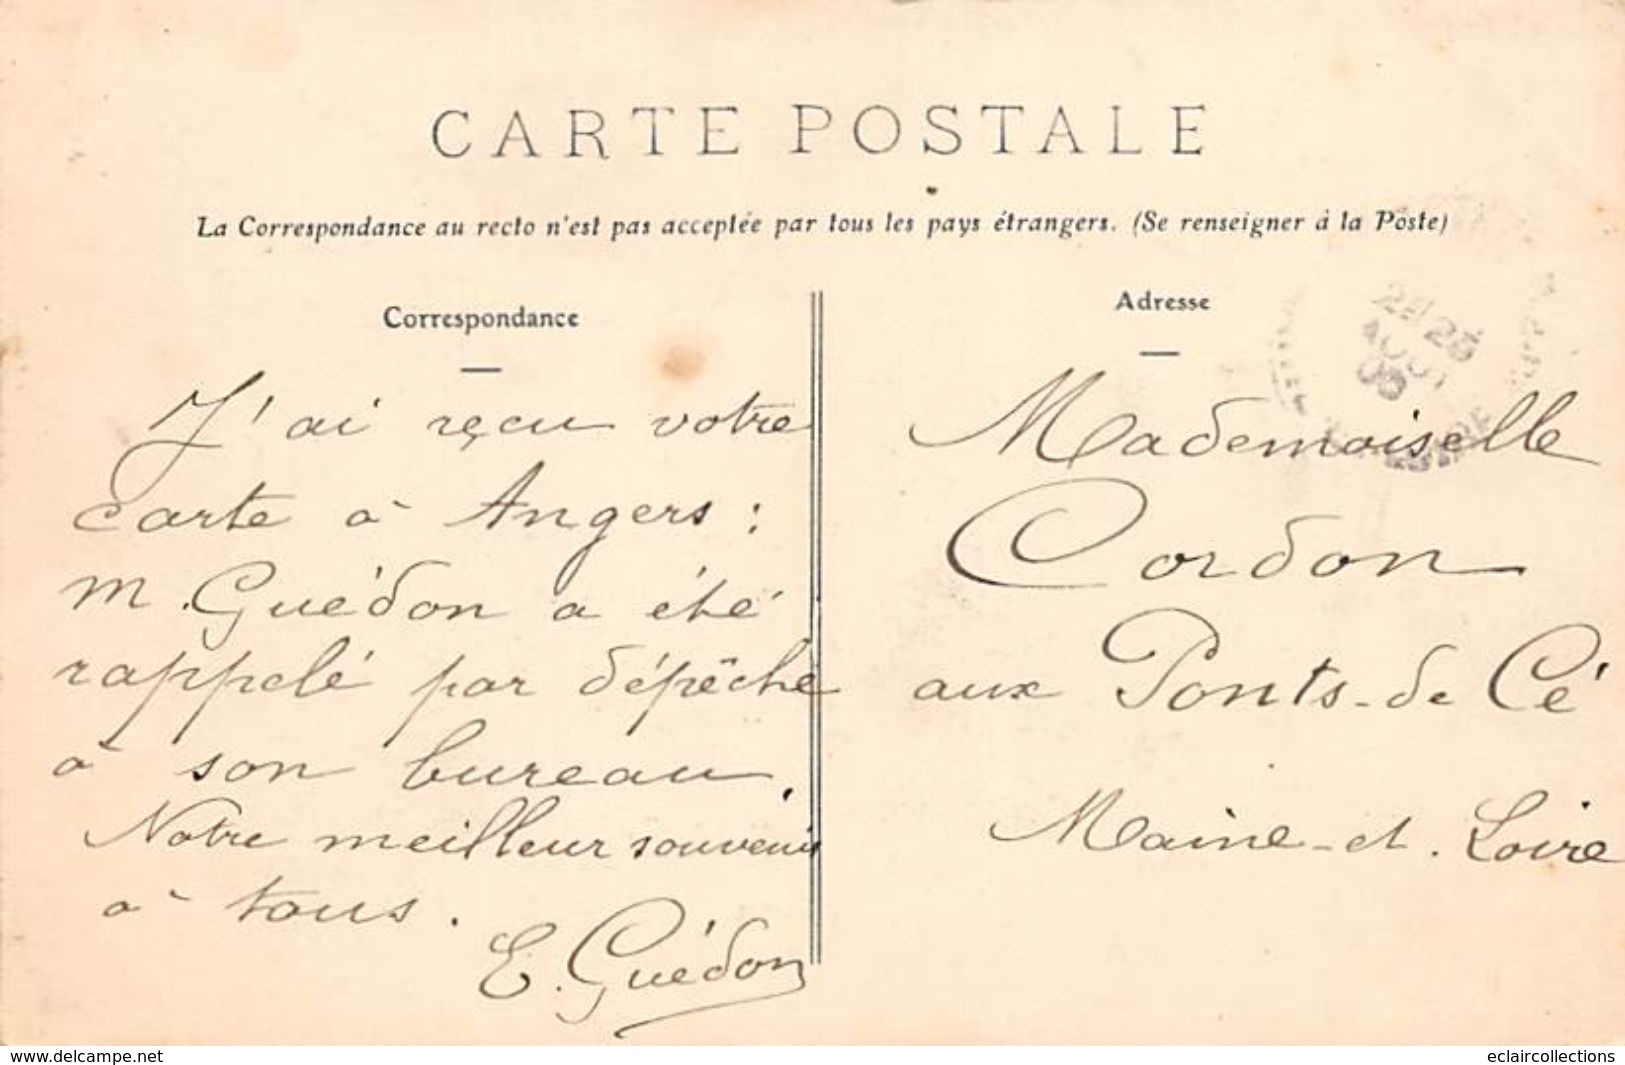 CARTE POSTALE
La Correspondance au recto n'est pas acceptée par tous les pays étrangers. (Se renseigner à la Poste)
Correspondance
J'ai reçu votre
carte à Angers :
M. Guédon a été
rappelé par dépêche
à son bureau.
Notre meilleur souvenir
à tous.
E. Guédon
Adresse
Mademoiselle
Cordon
aux Ponts-de Cé
Maine-et-Loire
AOUT
www.delcampe.net
eclaircollections